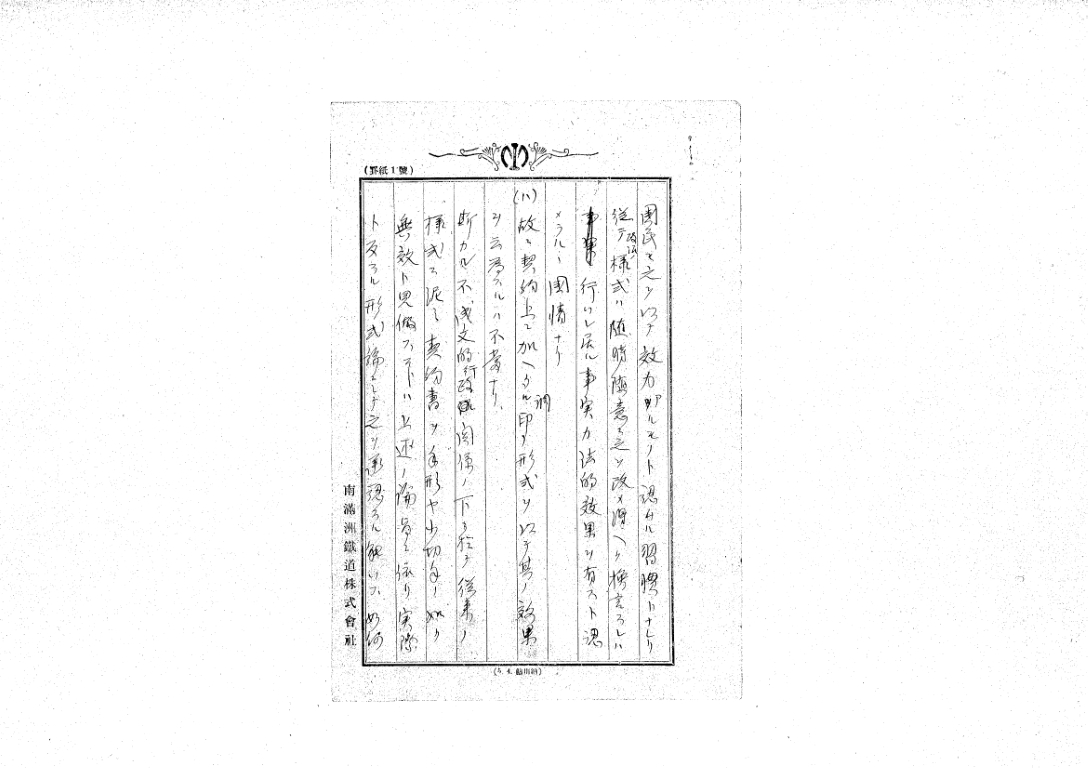 (罫紙1號)
國民モ之ヲ以テ效力アルモノト認ムル習慣トナレリ
從テ政治ノ様式ハ随時随意ニ之ヲ改メ得ヘク換言スレハ
行ハレ居ル事実カ法的效果ヲ有スト認
メラルヽ國情ナリ
(ハ)故ニ契約上ニ加ヘタル印ノ形式ヲ以テ其ノ效果
ヲ云為スルハ不當ナリ、
斯カル不成文的行政関係ノ下ニ於テ從来ノ
様式ニ泥ミ契約書ヲ手形ヤ小切手ノ如ク
無效ト思惟スルコトハ上述ノ論旨ニ依リ実際
ト反スル形式論ニシテ之ヲ承認スル能ハス 如何
南滿洲鐵道株式會社